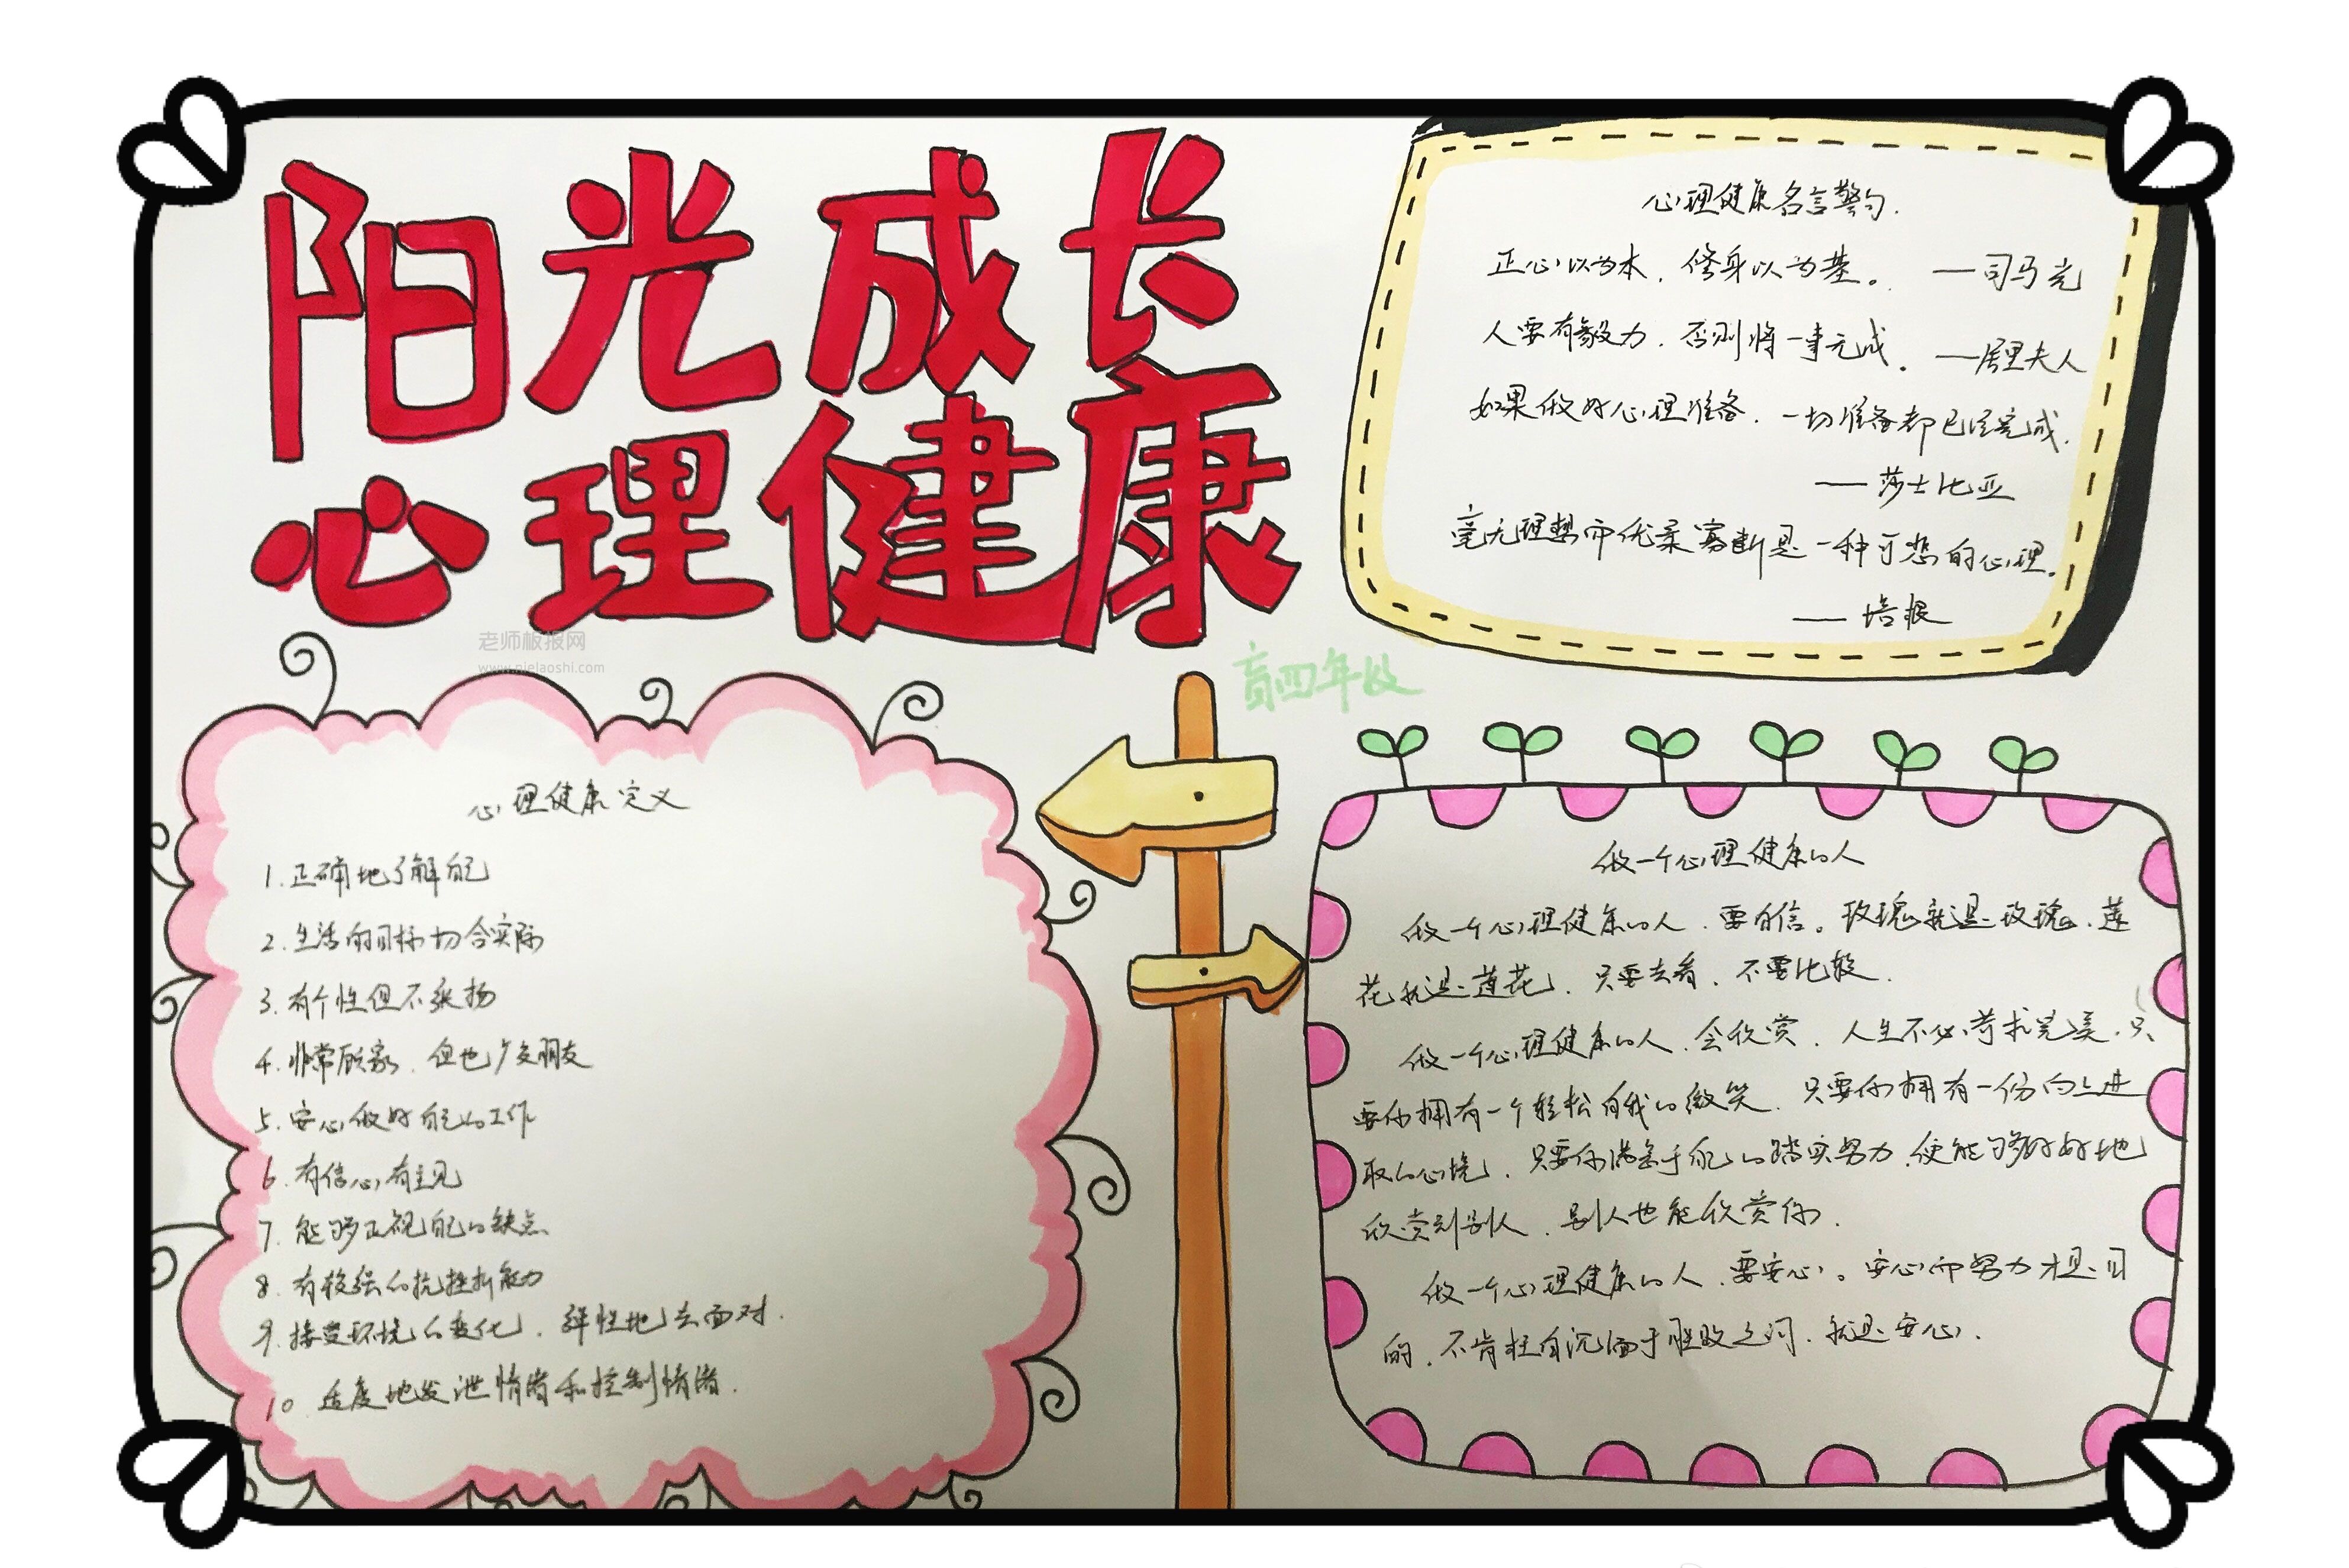 阳光成长
心理健康
老师板报网
www.pielaoshi.com
心理健康名言警句.
正心以为本，修身以为基。 —司马光
人要有毅力，否则将一事无成。 —居里夫人
如果做好心理准备，一切准备都已经完成.
—莎士比亚
毫无理想而优柔寡断是一种可悲的心理。
—培根
心理健康定义
1.正确地了解自己
2.生活的目标切合实际
3.有个性但不张扬
4.非常顾家，但也广交朋友
5.安心做好自己的工作
6.有信心有主见
7.能够正视自己的缺点
8.有较强的抗挫折能力
9.接受环境的变化，弹性地去面对.
10.适度地发泄情绪和控制情绪.
做一个心理健康的人
做一个心理健康的人，要自信。玫瑰就是玫瑰，莲
花就是莲花，只要去看，不要比较.
做一个心理健康的人，会欣赏，人生不必苛求完美，只
要你拥有一个轻松自我的微笑，只要你拥有一份向上进
取的心境，只要你满意于自己的踏实努力，便能够好好地
欣赏到别人，别人也能欣赏你.
做一个心理健康的人，要安心。安心而努力才是目
的，不肯枉自沉湎于胜败之间，就是安心.